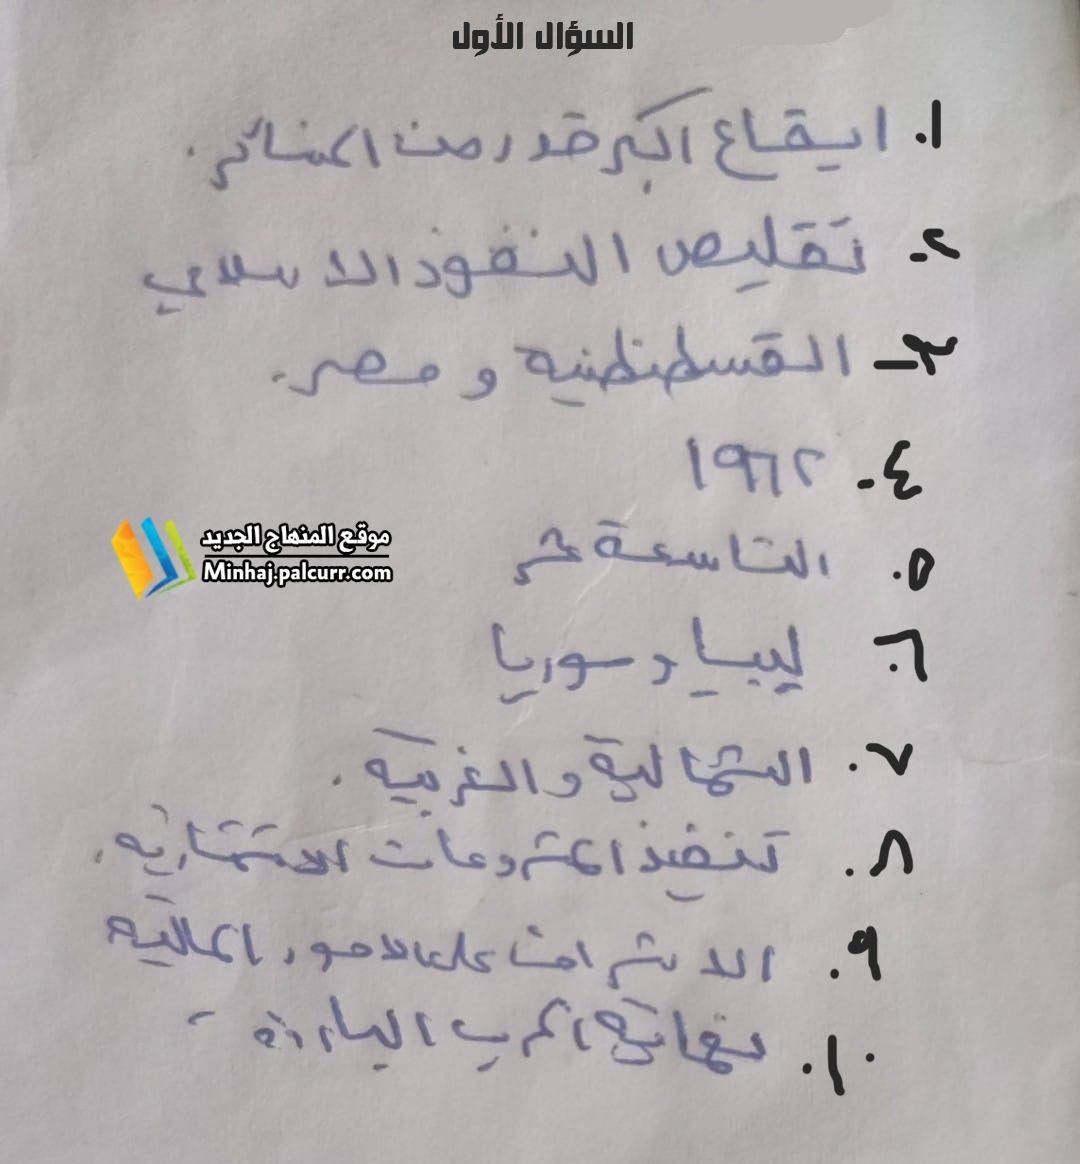 السؤال الأول
١. ايقاع اكبر قدر من الخسائر.
٢- تقليص النفوذ الاسلامي
٣- القسطنطينيه و مصر.
٤- ١٩٦٢
٥. التاسعة عشر
٦. ليبيا وسوريا
٧. الشمالية والغربيه.
٨. تنفيذ المشروعات الاستثماريه.
٩. الاشراف على الامور المالية
١٠. نهاية الحرب الباردة
موقع المنهاج الجديد
Minhaj.palcurr.com